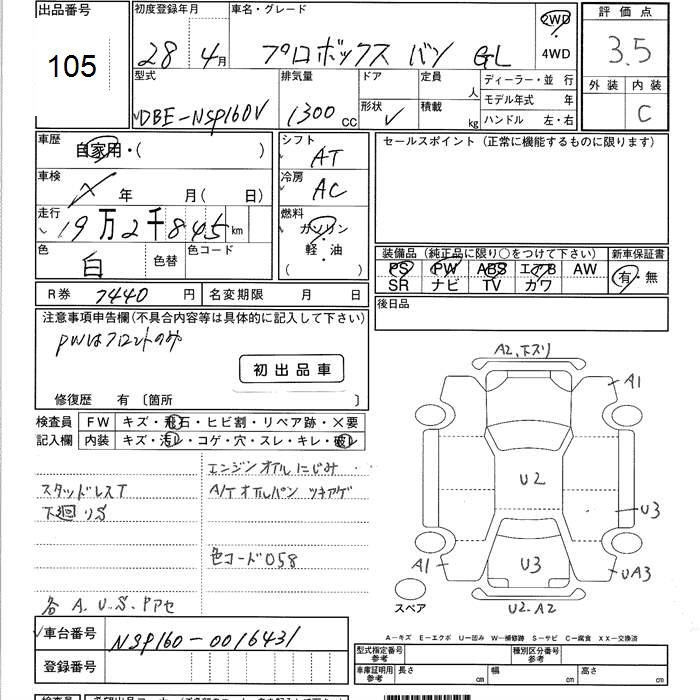 出品番号
105
初度登録年月
28年4月
車名・グレード
プロボックス バン GL
2WD
4WD
評価点
3.5
外装 内装
C
型式
DBE-NSP160V
排気量
1300cc
ドア
形状 V
定員 人
積載 kg
ディーラー・並行
モデル年式 年
ハンドル 左・右
車歴
自家用・( )
車検
年 月( 日)
走行
19万2千845km
色
白
色替
色コード
シフト
AT
冷房
AC
燃料
ガソリン
軽・油
( )
セールスポイント(正常に機能するものに限ります)
装備品(純正品に限り○をつけて下さい)
新車保証書
PS PW ABS エアB AW
SR ナビ TV カワ
有・無
後日品
R券 7440円
名変期限 月 日
注意事項申告欄(不具合内容等は具体的に記入して下さい)
PWはフロントのみ
初出品車
修復歴 有〔箇所 〕
検査員
記入欄
FW キズ・飛石・ヒビ割・リペア跡・×要
内装 キズ・汚レ・コゲ・穴・スレ・キレ・破レ
スタッドレスT
下廻りS
エンジンオイルにじみ
A/Tオイルパン ツキアゲ
色コード058
各A.U.S.Pアセ
車台番号
NSP160-0016431
登録番号
A2.下スリ
A1
U2
U3
A1
U3
UA3
U2.A2
スペア
A-キズ E-エクボ U-凹み W-補修跡 S-サビ C-腐食 XX-交換済
型式指定番号
参考
種別区分番号
参考
車庫証明用
参考
長さ cm
幅 cm
高さ cm